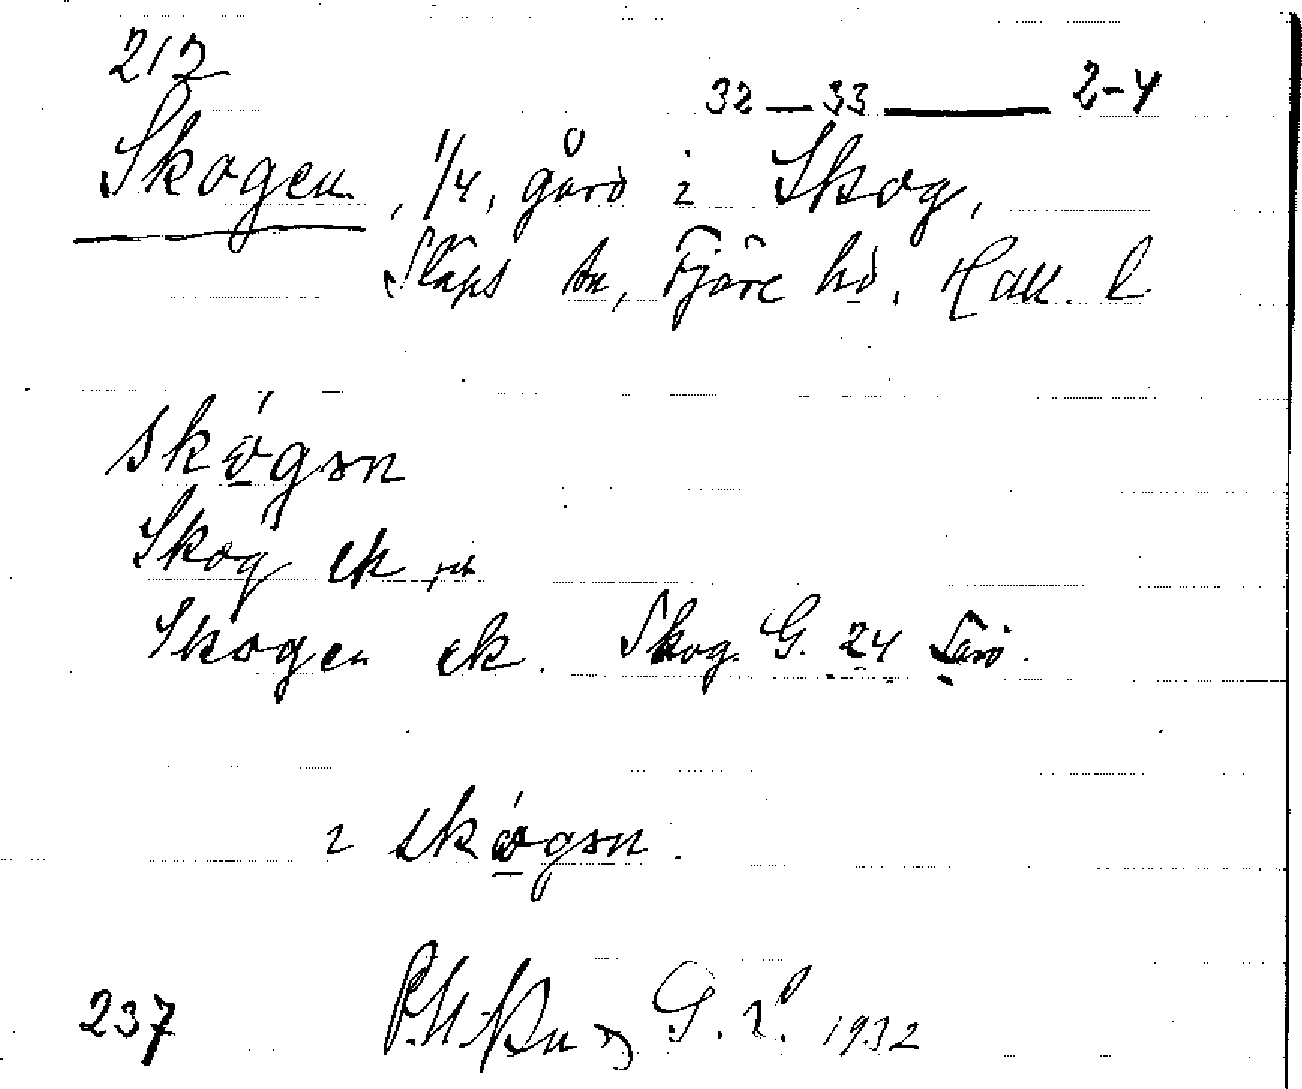 212
32 — 33 — 2-4
Skogen, 1/4, gård i Skog,
Släps sn, Fjäre hd, Hall. l
skógən
Skog ek
Skogen ek. Skog. G. 24
i skógən.
237 G. 1932